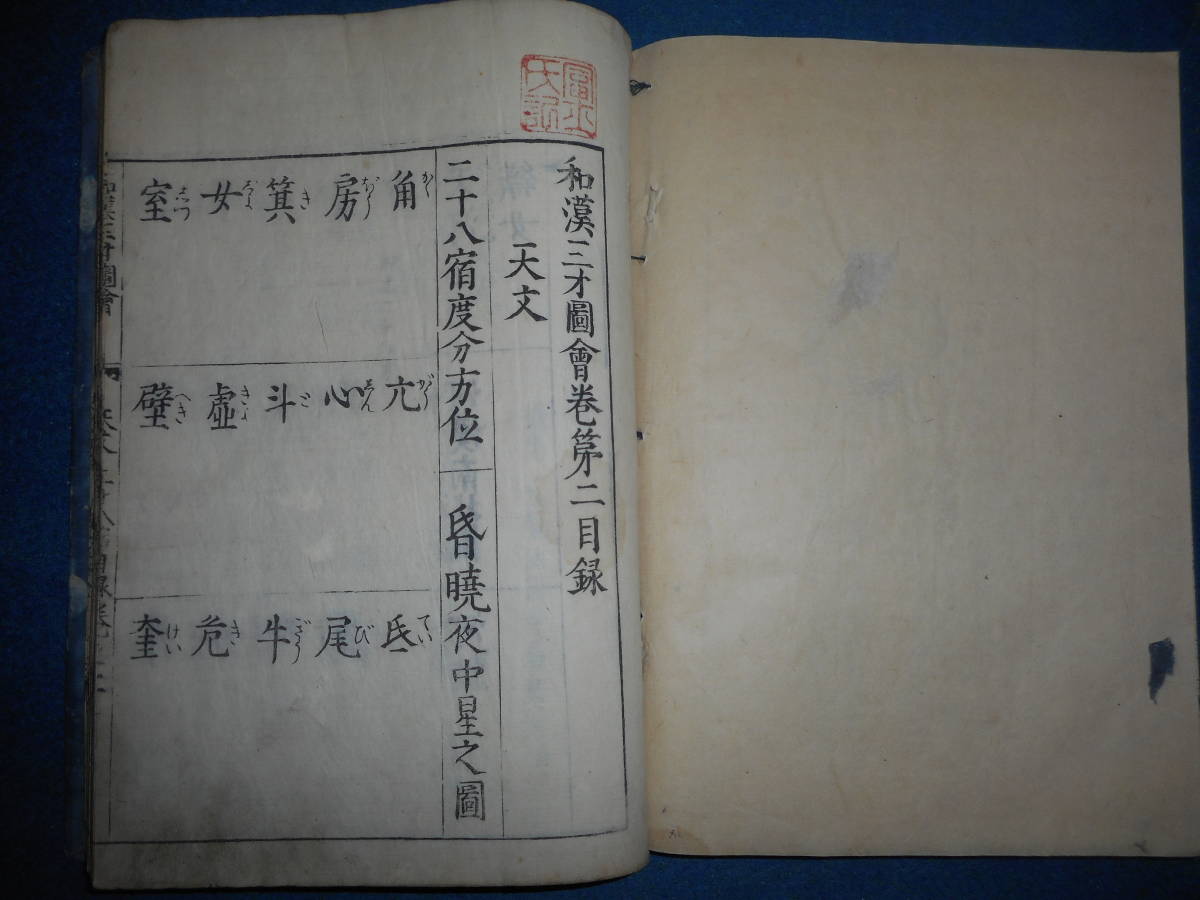 和漢三才圖會卷第二目録
天文
二十八宿度分方位
昏曉夜中星之圖
角 かく
亢 かう
氐 てい
房 ばう
心 しん
尾 び
箕 き
斗 と
牛 ぎう
女 ぢよ
虚 きよ
危 き
室 しつ
壁 へき
奎 けい